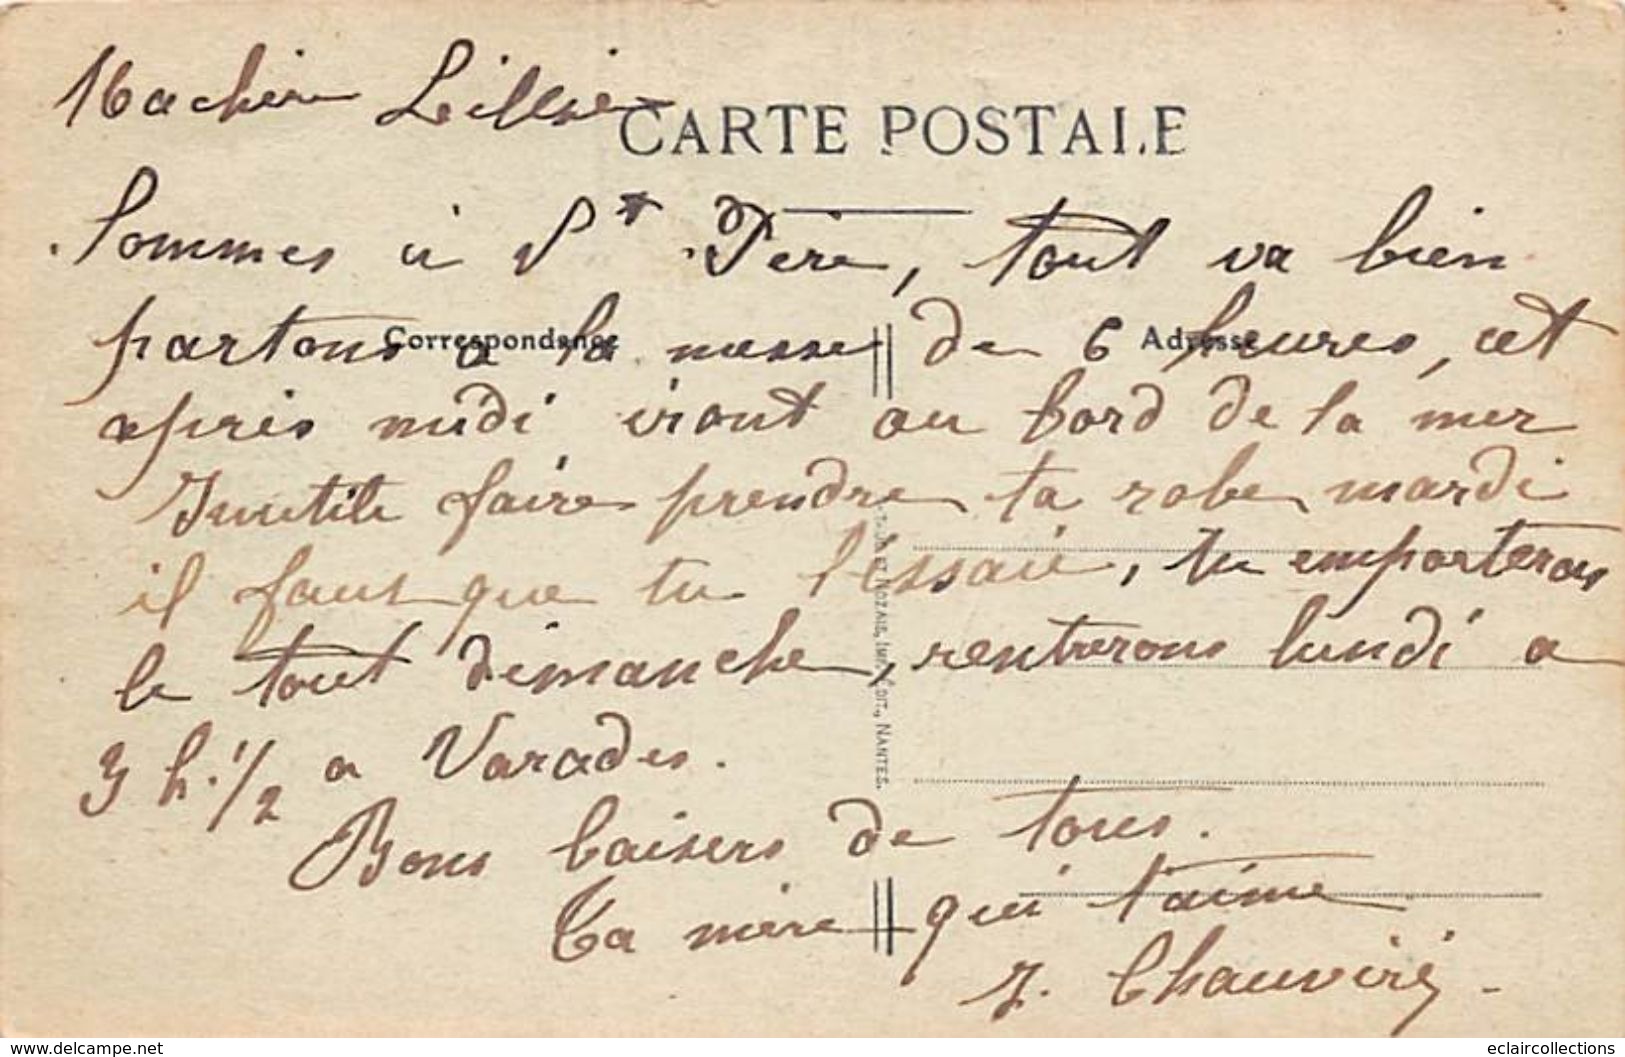 Ma chère
CARTE POSTALE
Sommes à St Père, tout va bien
Correspondance
Adresse
partons a la messe de 6 heures, et
après midi iront au bord de la mer
Inutile faire prendre ta robe mardi
il faut que tu l'éssaie, tu emporteras
le tout dimanche, rentrerons lundi a
3 h. 1/2 a Varades.
Bons baisers de tous.
Ta mère qui t'aime
Chauviré
NOZAIS, IMP. ÉDIT., NANTES.
www.delcampe.net
eclaircollections